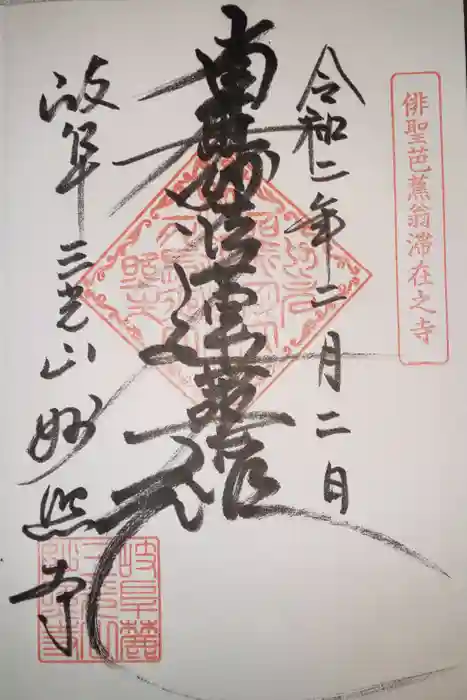 俳聖芭蕉翁滞在之寺
令和二年二月二日
南無妙法蓮華経
岐阜 三光山妙照寺